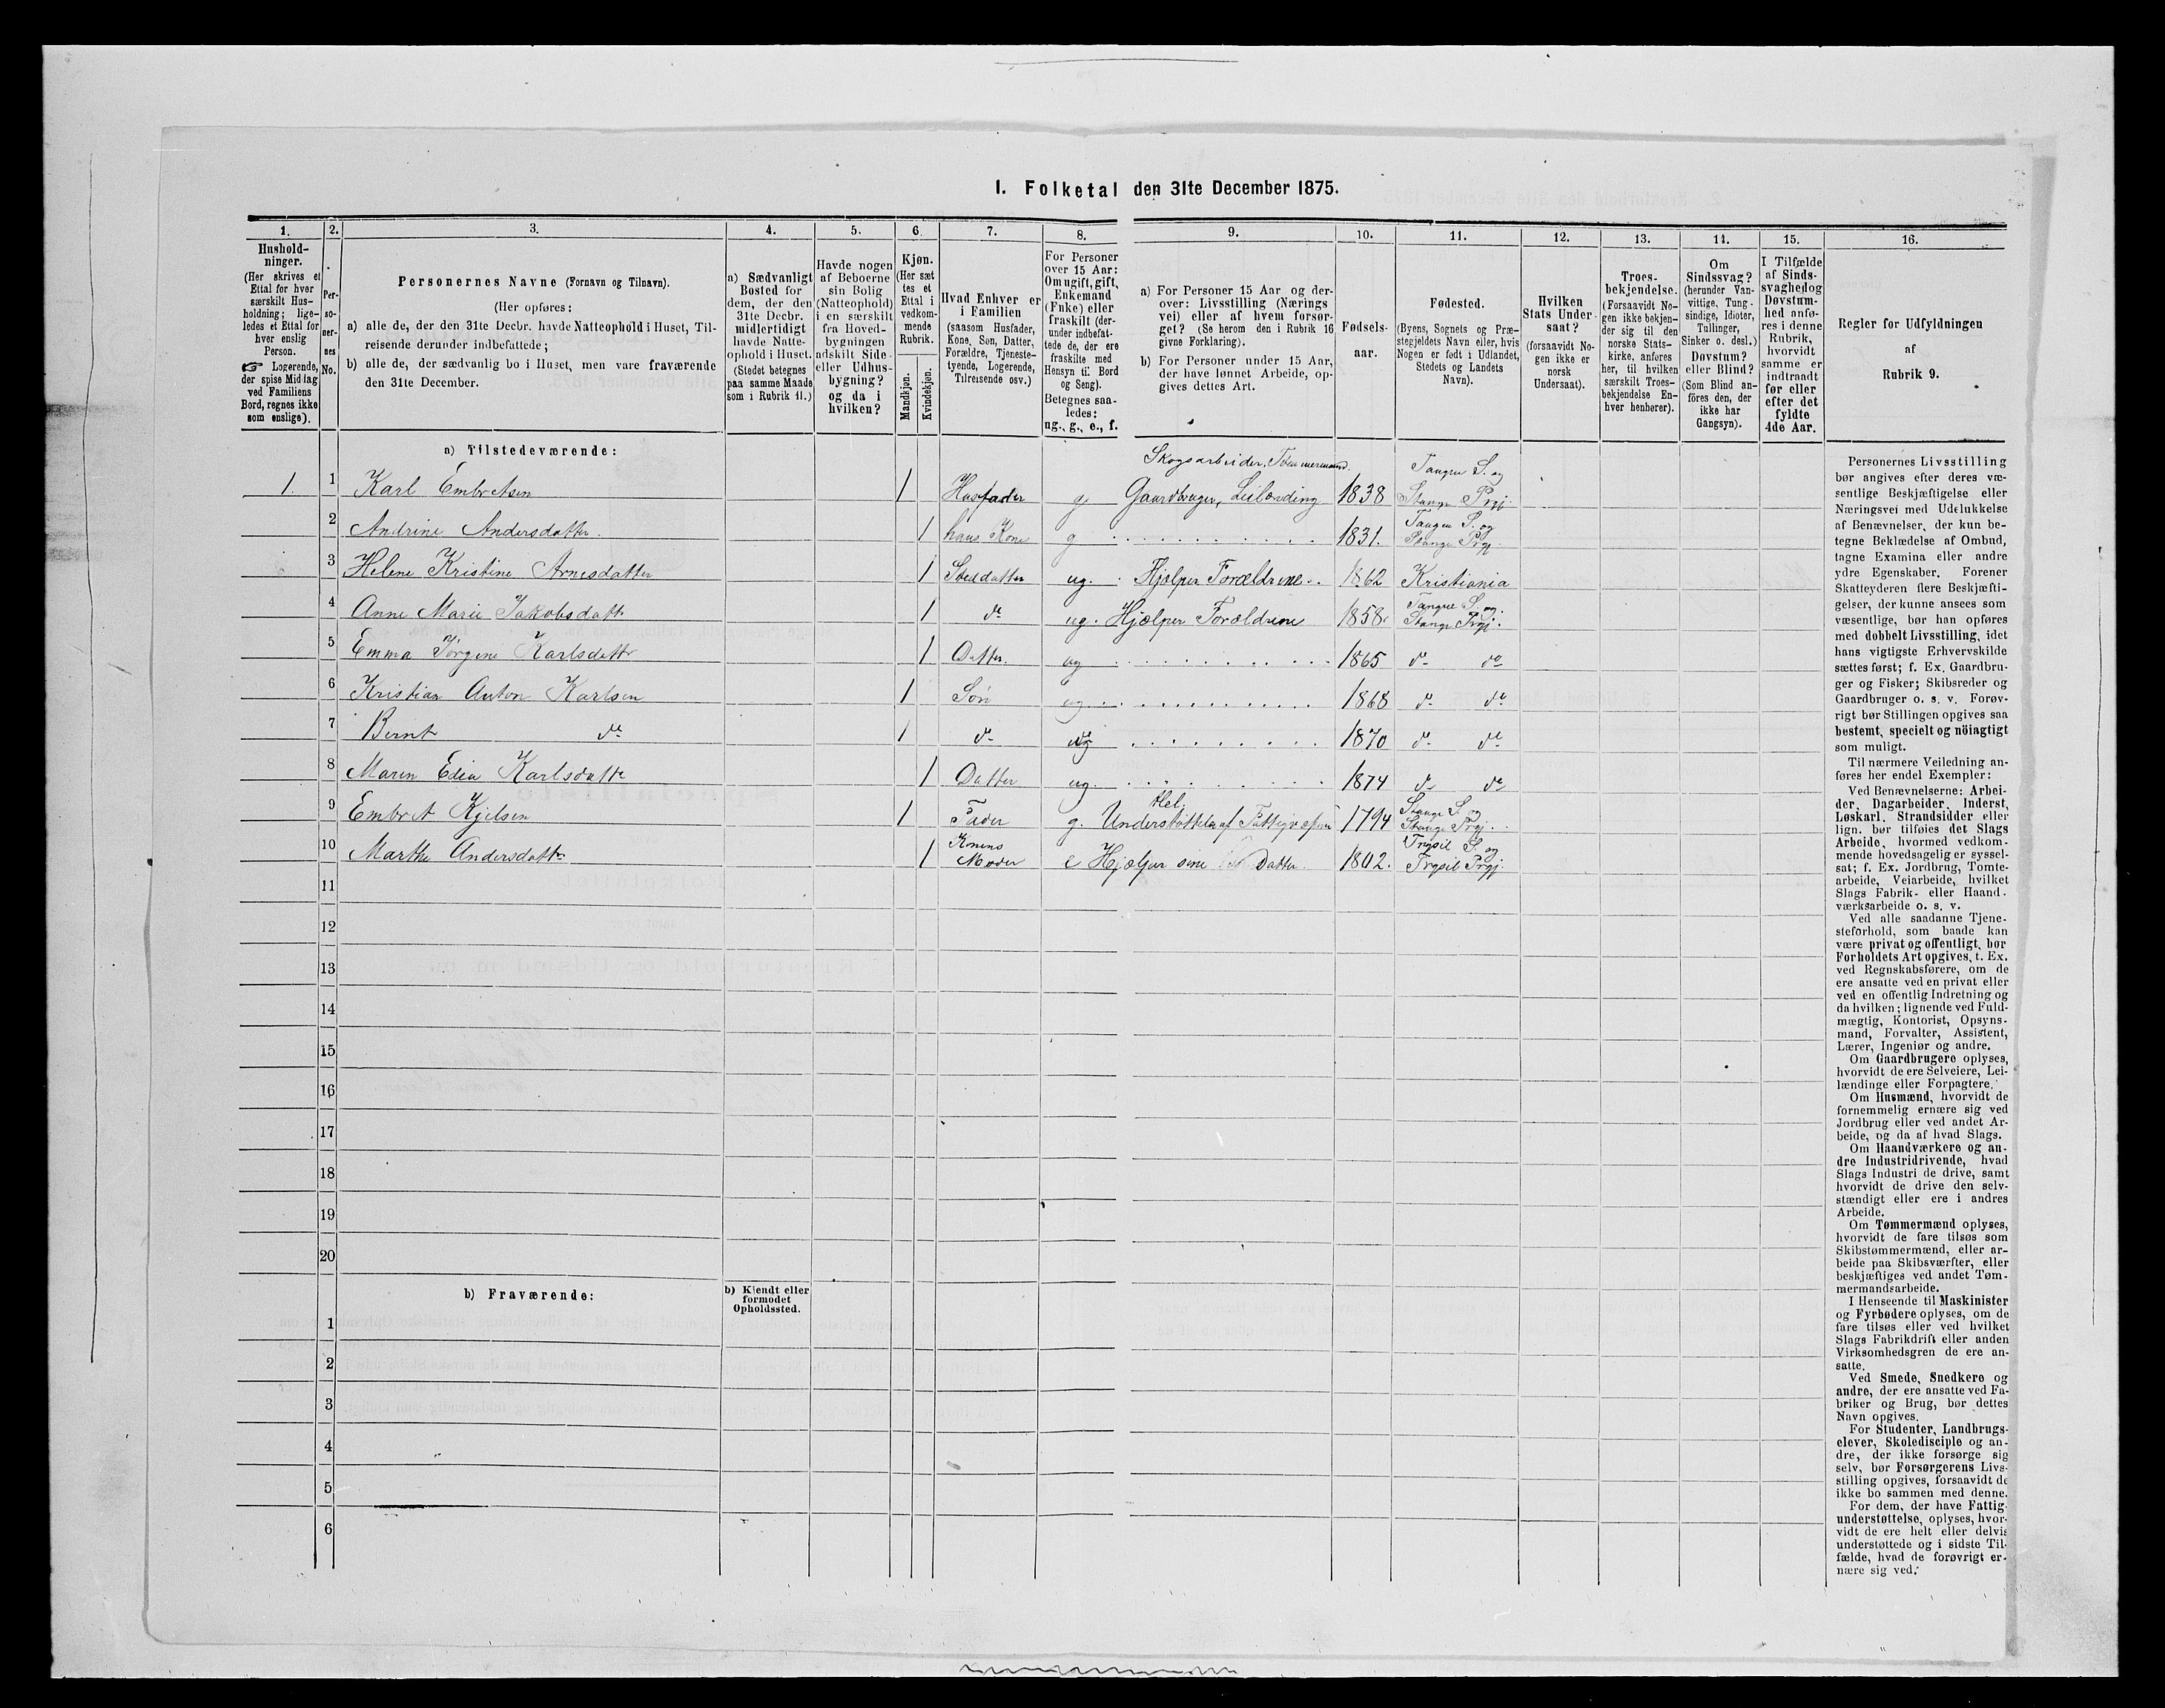 I. Folketal den 31te December 1875.
1.
Hushold-
ninger.
(Her skrives et
Ettal for hver
særskilt Hus-
holdning; lige-
ledes et Ettal for
hver enslig
Person.
☞ Logerende,
der spise Middag
ved Familiens
Bord, regnes ikke
som enslige).
2.
Per-
so-
ner-
nes
No.
3.
Personernes Navne (Fornavn og Tilnavn).
(Her opføres:
a) alle de, der den 31te Decbr. havde Natteophold i Huset, Til-
reisende derunder indbefattede;
b) alle de, der sædvanlig bo i Huset, men vare fraværende
den 31te December.
4.
a) Sædvanligt
Bosted for
dem, der den
31te Decbr.
midlertidigt
havde Natte-
ophold i Huset.
(Stedet betegnes
paa samme Maade
som i Rubrik 11.)
5.
Havde nogen
af Beboerne
sin Bolig
(Natteophold)
i en særskilt
fra Hoved-
bygningen
adskilt Side-
eller Udhus-
bygning?
og da i
hvilken?
6.
Kjøn.
(Her sæt
tes et
Ettal i
vedkom-
mende
Rubrik.
Mandkjøn.
Kvindekjøn.
7.
Hvad Enhver er
i Familien
(saasom Husfader,
Kone, Søn, Datter,
Forældre, Tjeneste-
tyende, Logerende,
Tilreisende osv.)
8.
For Personer
over 15 Aar:
Om ugift, gift,
Enkemand
(Enke) eller
fraskilt (der-
under indbefat-
tede de, der ere
fraskilte med
Hensyn til Bord
og Seng).
Betegnes saa-
ledes:
ug., g., e., f.
9.
a) For Personer 15 Aar og der-
over: Livsstilling (Nærings
vei) eller af hvem forsør-
get? (Se herom den i Rubrik 16
givne Forklaring).
b) For Personer under 15 Aar,
der have lønnet Arbeide, op-
gives dettes Art.
10.
Fødsels-
aar.
11.
Fødested.
(Byens, Sognets og Præ-
stegjeldets Navn eller, hvis
Nogen er født i Udlandet,
Stedets og Landets
Navn).
12.
Hvilken
Stats Under-
saat?
(forsaavidt No-
gen ikke er
norsk
Undersaat).
13.
Troes-
bekjendelse.
(Forsaavidt No-
gen ikke bekjen-
der sig til den
norske Stats-
kirke, anføres
her, til hvilken
særskilt Troes-
bekjendelse En-
hver henhører).
14.
Om
Sindssvag?
(herunder Van-
vittige, Tung-
sindige, Idioter,
Tullinger,
Sinker o. desl.)
Døvstum?
eller Blind?
(Som Blind an-
føres den, der
ikke har
Gangsyn).
15.
I Tilfælde
af Sinds-
svaghed og
Døvstum-
hed anfø-
res i denne
Rubrik,
hvorvidt
samme er
indtraadt
før eller
efter det
fyldte
4de Aar.
16.
Regler for Udfyldningen
af
Rubrik 9.
a) Tilstedeværende:
Skogsarbeider, Tømmermand.
Tangen S. og
1. 1 Karl Embretsen 1 Husfader g Gaardbruger, Leilænding 1838 Stange Prgj.
Tangen S. og
2 Andrine Andersdatter. 1 hans Kone g 1831. Stange Prgj.
3 Helene Kristine Arnesdatter 1 Steddatter ug. Hjælper Forældrene 1862 Kristiania
Tangen S. og
4 Anne Marie Jakobsdatt 1 do ug. Hjælper Forældrene 1858. Stange Prgj.
5 Emma Jørgine Karlsdatt 1 Datter. ug 1865 do do
6 Kristian Anton Karlsen 1 Søn ug 1868 do do
7 Bernt do 1 do ug 1870 do do
8 Maren Edia Karlsdatte 1 Datter ug. 1874 do do
Hel. Stange S. og
9 Embret Kjelsen 1 Fader g. Understøttelse af Fattigv 1794 Stange Prgj.
Konens Trysil S. og
10 Marthe Andersdatte 1 Moder e Hjælper sine Datter. 1802. Trysil Prgj.
11
12
13
14
15
16
17
18
19
20
b) Fraværende:
b) Kjendt eller
formodet
Opholdssted.
1
2
3
4
5
6
Personernes Livsstilling
bør angives efter deres væ-
sentlige Beskjæftigelse eller
Næringsvei med Udelukkelse
af Benævnelser, der kun be-
tegne Beklædelse af Ombud,
tagne Examina eller andre
ydre Egenskaber. Forener
Skatteyderen flere Beskjæfti-
gelser, der kunne ansees som
væsentlige, bør han opføres
med dobbelt Livsstilling, idet
hans vigtigste Erhvervskilde
sættes først; f. Ex. Gaardbru-
ger og Fisker; Skibsreder og
Gaardbruger o. s. v. Forøv-
rigt bør Stillingen opgives saa
bestemt, specielt og nöiagtigt
som muligt.
Til nærmere Veiledning an-
føres her endel Exempler:
Ved Benævnelserne: Arbei-
der, Dagarbeider, Inderst,
Løskarl, Strandsidder eller
lign. bør tilføies det Slags
Arbeide, hvormed vedkom-
mende hovedsagelig er syssel-
sat; f. Ex. Jordbrug, Tomte-
arbeide, Veiarbeide, hvilket
Slags Fabrik- eller Haand-
værksarbeide o. s. v.
Ved alle saadanne Tjene-
steforhold, som baade kan
være privat og offentligt, bør
Forholdets Art opgives, t. Ex.
ved Regnskabsførere, om de
ere ansatte ved en privat eller
ved en offentlig Indretning og
da hvilken; lignende ved Fuld-
mægtig, Kontorist, Opsyns-
mand, Forvalter, Assistent,
Lærer, Ingeniør og andre.
Om Gaardbrugere oplyses,
hvorvidt de ere Selveiere, Lei-
lændinge eller Forpagtere.
Om Husmænd, hvorvidt de
fornemmelig ernære sig ved
Jordbrug eller ved andet Ar-
beide, og da af hvad Slags.
Om Haandværkere og an-
dre Industridrivende, hvad
Slags Industri de drive, samt
hvorvidt de drive den selv-
stændigt eller ere i andres
Arbeide.
Om Tømmermænd oplyses,
hvorvidt de fare tilsøs som
Skibstømmermænd, eller ar-
beide paa Skibsværfter, eller
beskjæftiges ved andet Tøm-
mermandsarbeide.
I Henseende til Maskinister
og Fyrbødere oplyses, om de
fare tilsøs eller ved hvilket
Slags Fabrikdrift eller anden
Virksomhedsgren de ere an-
satte.
Ved Smede, Snedkere og
andre, der ere ansatte ved Fa-
briker og Brug, bør dettes
Navn opgives.
For Studenter, Landbrugs-
elever, Skoledisciple og an-
dre, der ikke forsørge sig
selv, bør Forsørgerens Livs-
stilling opgives, forsaavidt de
ikke bo sammen med denne.
For dem, der have Fattig-
understøttelse, oplyses, hvor-
vidt de ere helt eller delvis
understøttede og i sidste Til-
fælde, hvad de forøvrigt er-
nære sig ved.